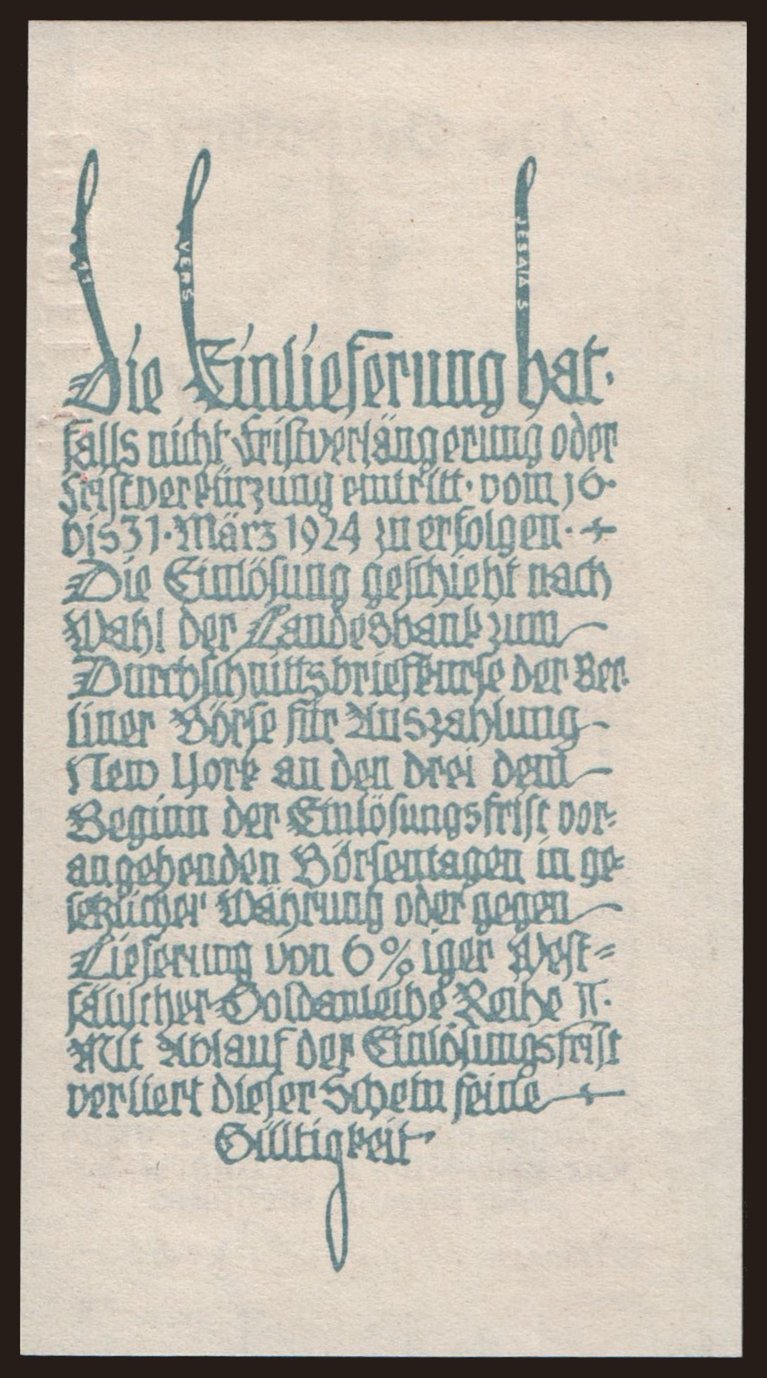 11 VERS JESAIA 3
Die Einlieferung hat·
falls nicht Fristverlängerung oder
Fristverkürzung eintritt· vom 16·
bis 31· März 1924 zu erfolgen·
Die Einlösung geschieht nach
Wahl der Landesbank zum
Durchschnittsbriefkurse der Ber-
liner Börse für Auszahlung
New York an den drei dem
Beginn der Einlösungsfrist vor-
angehenden Börsentagen in ge-
setzlicher Währung oder gegen
Lieferung von 6%iger West=
fälischer Goldanleihe Reihe II·
Mit Ablauf der Einlösungsfrist
verliert dieser Schein seine
Gültigkeit·